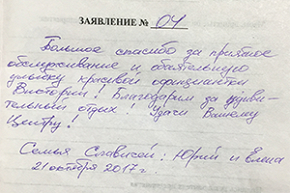 ЗАЯВЛЕНИЕ № 04
Большое спасибо за приятное
обслуживание и обаятельную
улыбку красивой официантки
Виктории! Благодарим за удиви-
тельный отдых! Удачи Вашему
Центру!
Семья Славсей: Юрий и Елена
21 октября 2017 г.